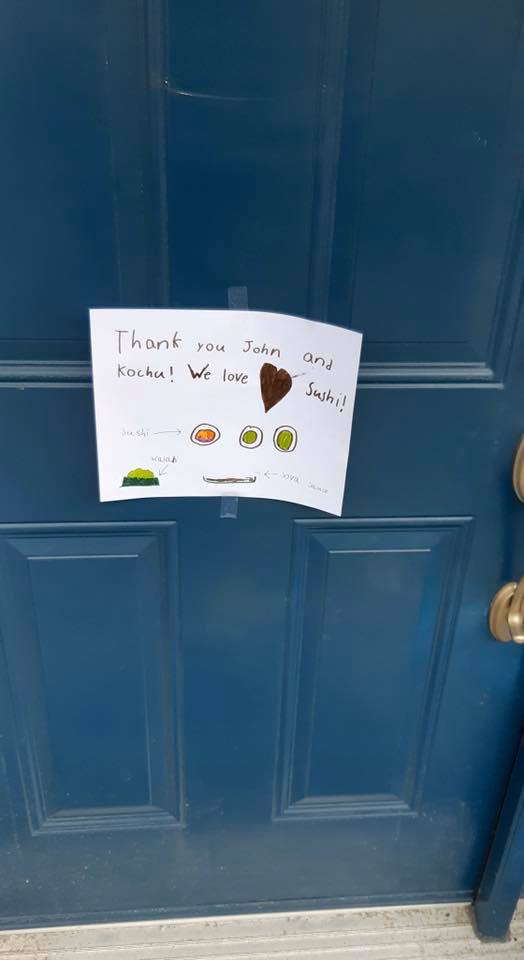 Thank you John and
Kochu! We love Sushi!
sushi
wasabi
soya sauce